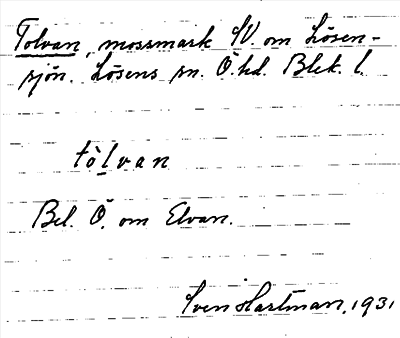 Tolvan, mossmark SV. om Lösen-
sjön. Lösens sn. Ö. hd. Blek. l.
tòlvan
Bel. Ö. om Elvan.
Sven Hartman, 1931